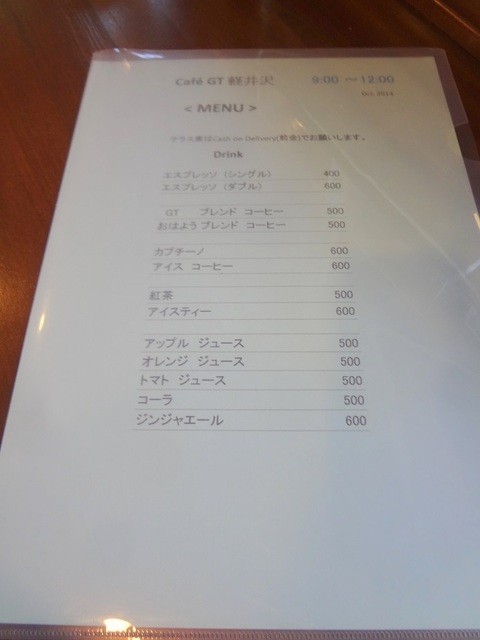 Café GT 軽井沢 9:00 ～12:00
Oct. 2014
< MENU >
テラス席はCash on Delivery(前金)でお願いします。
Drink
エスプレッソ (シングル) 400
エスプレッソ (ダブル) 600
GT ブレンド コーヒー 500
おはよう ブレンド コーヒー 500
カプチーノ 600
アイス コーヒー 600
紅茶 500
アイスティー 600
アップル ジュース 500
オレンジ ジュース 500
トマト ジュース 500
コーラ 500
ジンジャエール 600